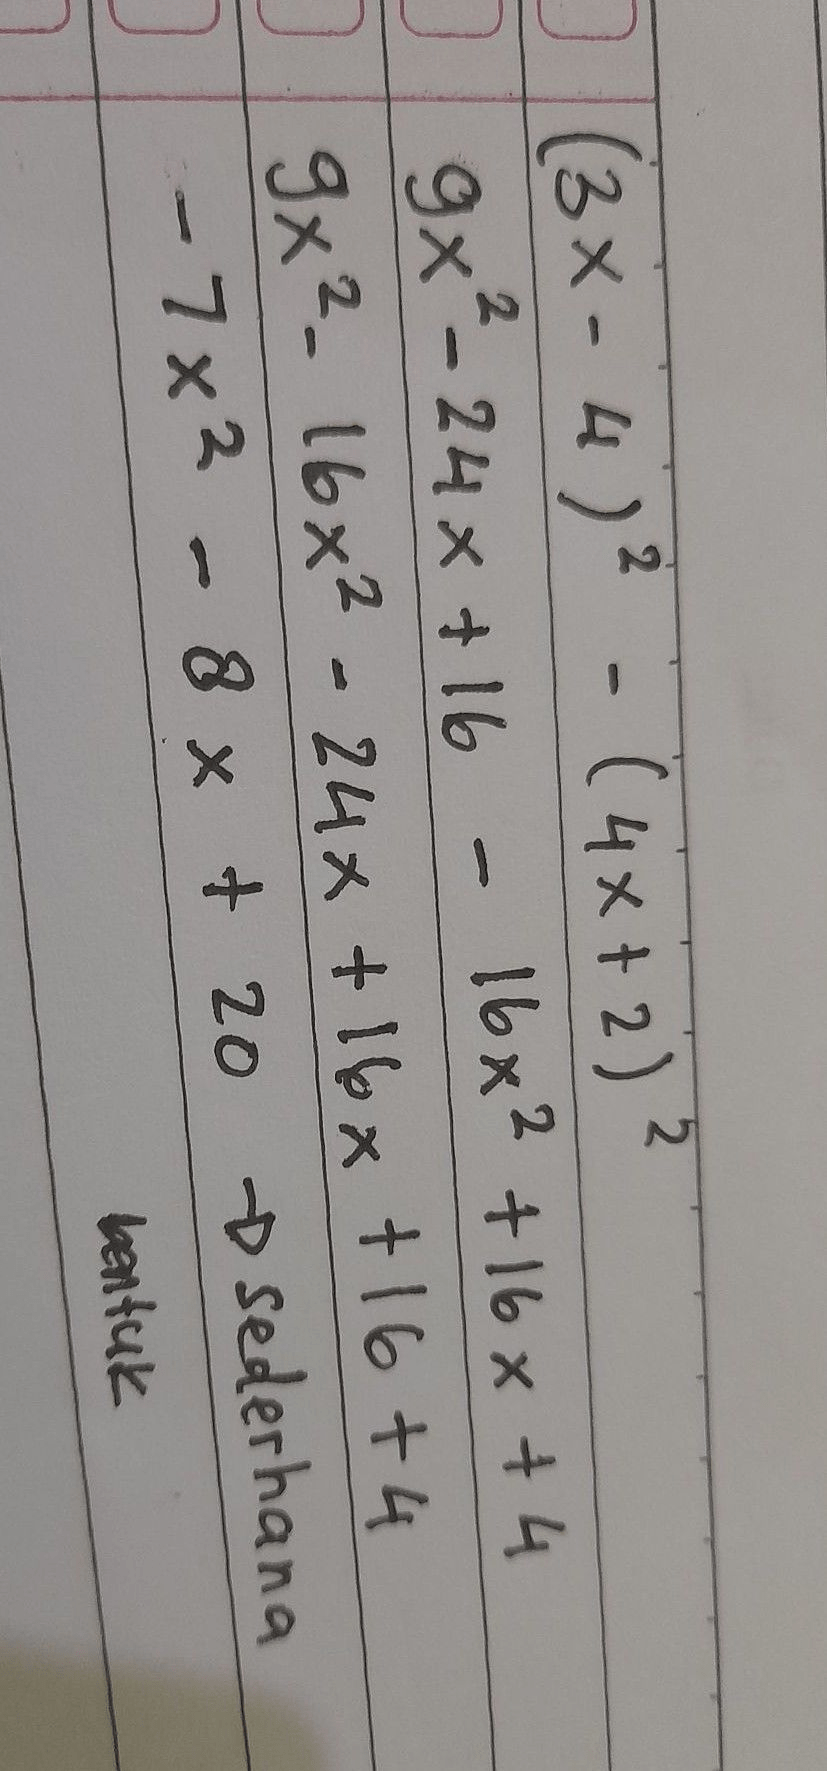 (3x - 4)² - (4x + 2)²
9x² - 24x + 16 - 16x² + 16x + 4
9x² - 16x² - 24x + 16x + 16 + 4
- 7x² - 8x + 20 → sederhana
bentuk